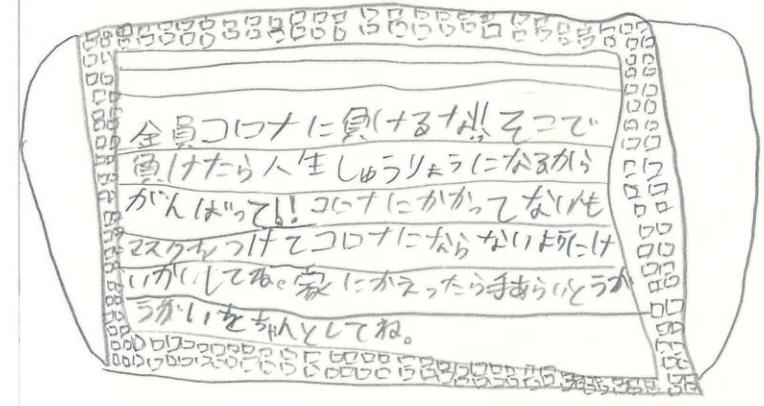 全員コロナに負けるな!!そこで
負けたら人生しゅうりょうになるから
がんばって!!コロナにかかってない人も
マスクをつけてコロナにならないようにけ
いかいしてね。家にかえったら手あらいとうが
うがいをちゃんとしてね。